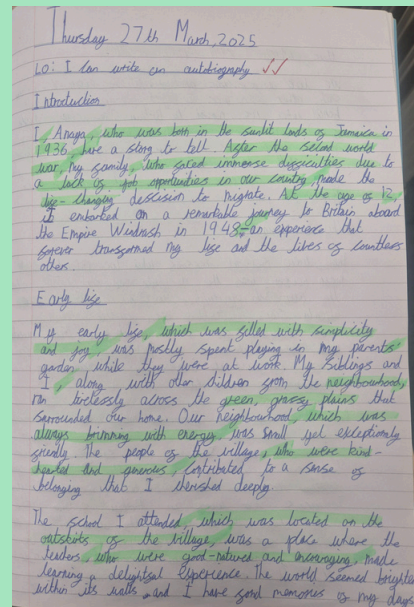 Thursday 27th March, 2025
LO: I can write an autobiography
Introduction
I, Anaya, who was born in the sunlit lands of Jamaica in
1936, have a story to tell. After the second world
war, my family, who faced immense difficulties due to
a lack of job opportunities in our country, made the
life-changing descision to migrate. At the age of 12,
I embarked on a remarkable journey to Britain aboard
the Empire Windrush in 1948, an experience that
forever transformed my life and the lives of countless
others.
Early life
My early life, which was filled with simplicity
and joy, was mostly spent playing in my parents'
garden while they were at work. My siblings and
I, along with other children from the neighbourhood,
ran tirelessly across the green, grassy plains that
surrounded our home. Our neighbourhood, which was
always brimming with energy, was small yet exceptionally
friendly. The people of the village, who were kind-
hearted and generous, contributed to a sense of
belonging that I cherished deeply.
The school I attended, which was located on the
outskirts of the village, was a place where the
teachers, who were good-natured and encouraging, made
learning a delightful experience. The world seemed brighter
within its walls, and I have fond memories of my days